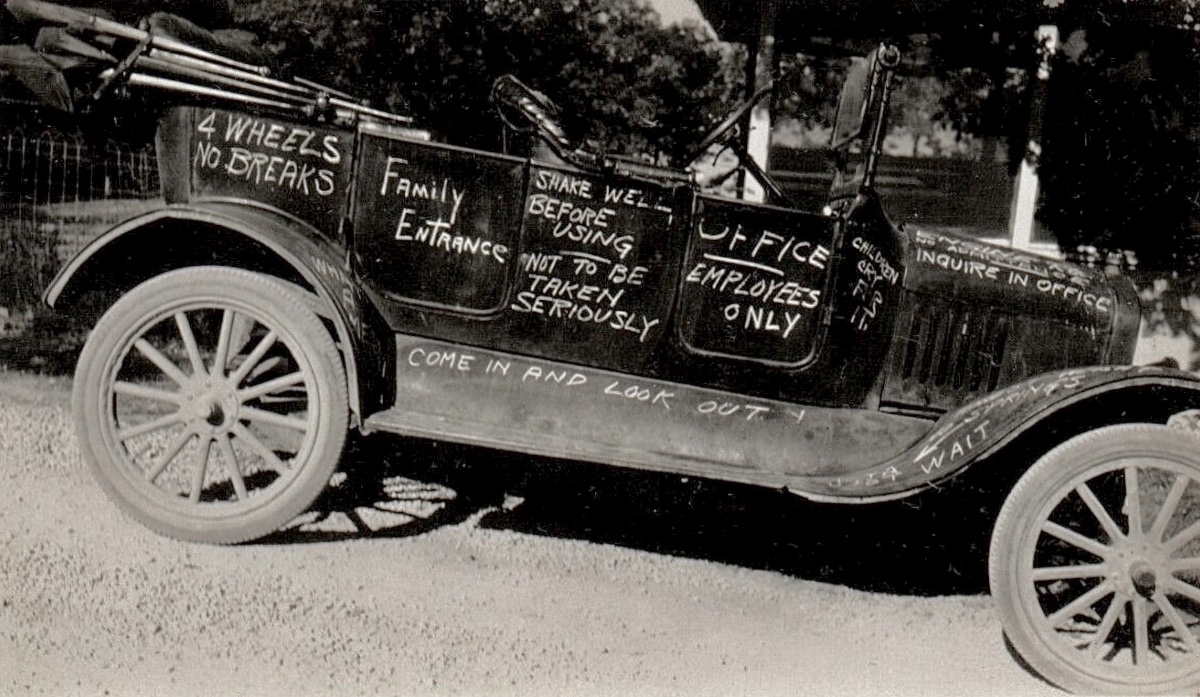 4 WHEELS
NO BREAKS
Family
Entrance
SHAKE WELL
BEFORE
USING
NOT TO BE
TAKEN
SERIOUSLY
OFFICE
EMPLOYEES
ONLY
CHILDREN
CRY
FOR
IT
INQUIRE IN OFFICE
COME IN AND LOOK OUT
SPRINGS
WAIT